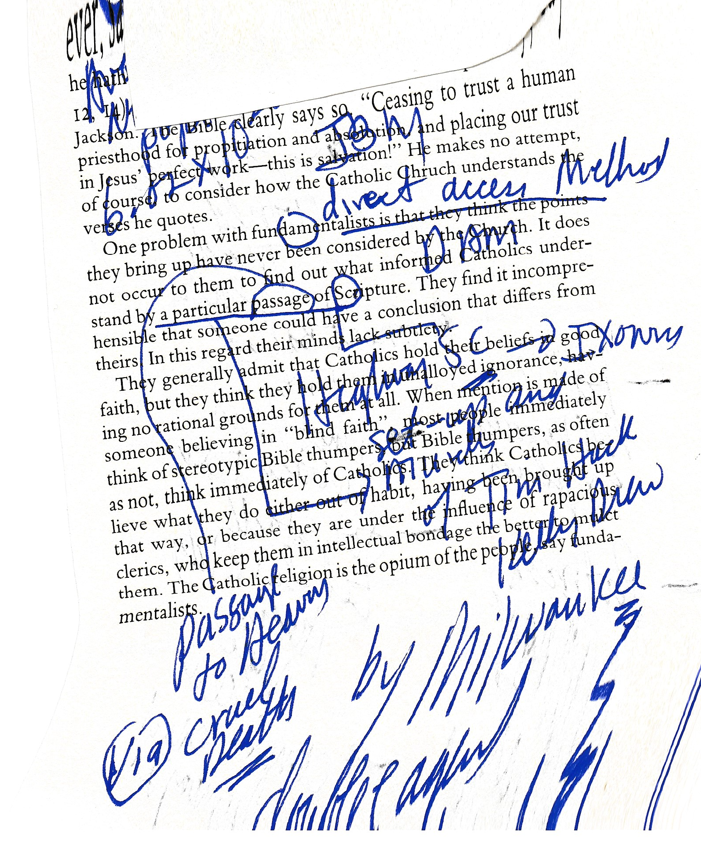 ever,
he
12, 14)
Jackson. The Bible clearly says so. “Ceasing to trust a human
priesthood for propitiation and absolution, and placing our trust
in Jesus’ perfect work—this is salvation!” He makes no attempt,
of course, to consider how the Catholic Chruch understands the
verses he quotes.
JBM
direct access Method
DAM
One problem with fundamentalists is that they think the points
they bring up have never been considered by the Church. It does
not occur to them to find out what informed Catholics under-
stand by a particular passage of Scripture. They find it incompre-
hensible that someone could have a conclusion that differs from
theirs. In this regard their minds lack subtlety.
They generally admit that Catholics hold their beliefs in good
faith, but they think they hold them in unalloyed ignorance, hav-
ing no rational grounds for them at all. When mention is made of
someone believing in “blind faith”, most people immediately
think of stereotypic Bible thumpers, but Bible thumpers, as often
as not, think immediately of Catholics. They think Catholics be-
lieve what they do either out of habit, having been brought up
that way, or because they are under the influence of rapacious
clerics, who keep them in intellectual bondage the better to mulct
them. The Catholic religion is the opium of the people, say funda-
mentalists.
set-up and
Murder
of Tim Hack
Kelly Drew
by Milwaukee
Passage
to Heaven
Via cruel
Death